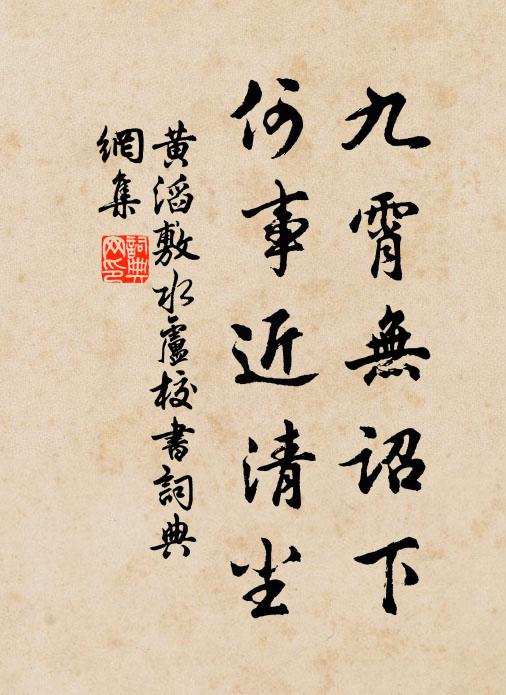 九霄無詔下
何事近清尘
黃滔敷水盧校書詞典
網集
詞典
网印